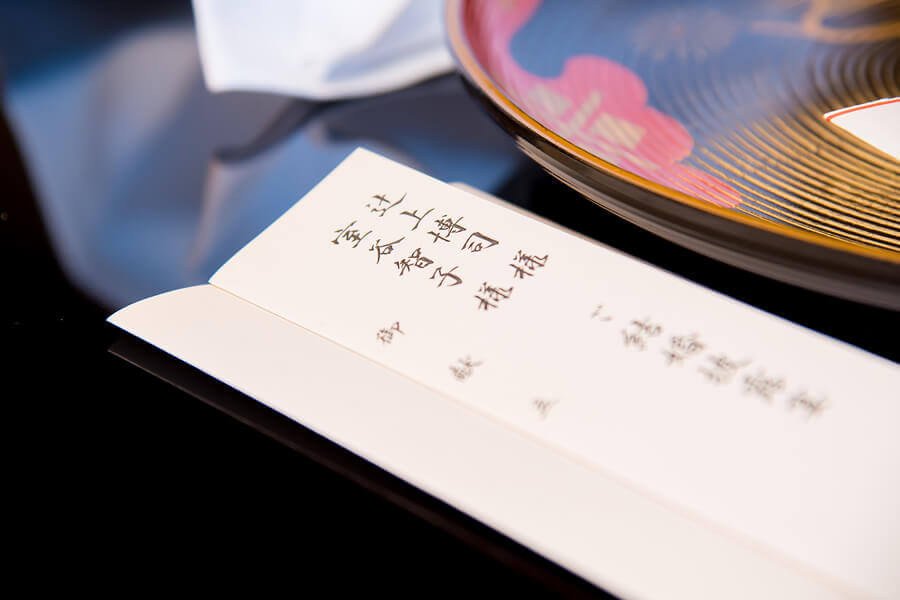 辻上博司 様
室谷智子 様
ご結婚披露宴
御献立